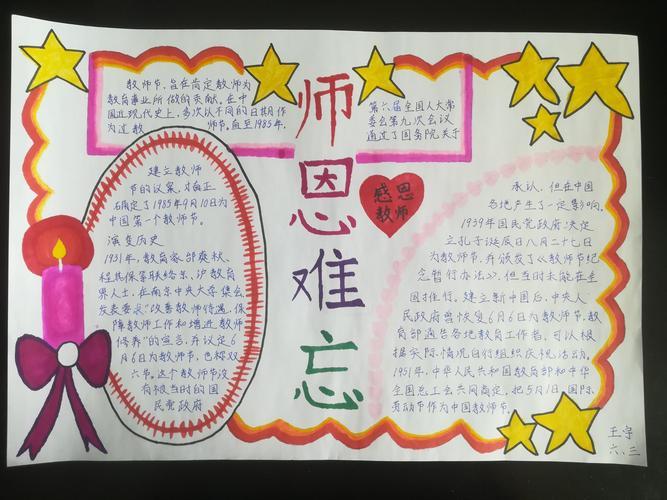 教师节,旨在肯定教师为
教育事业所做的贡献。在中
国近现代史上,多次以不同的日期作
为过教师节。直至1985年,
第六届全国人大常
委会第九次会议
通过了国务院关于
建立教师
节的议案,才真正
确定了1985年9月10日为
中国第一个教师节。
演变历史
1931年,教育家邰爽秋、
程其保等联络京、沪教育
界人士,在南京中央大学集会,
发表要求“改善教师待遇,保
障教师工作和增进教师
修养”的宣言,并议定6
月6日为教师节,也称双
六节。这个教师节没
有被当时的国
民党政府
师恩难忘
感恩
教师
承认,但在中国
各地产生了一定影响。
1939年国民党政府决定
立孔子诞辰日八月二十七日
为教师节,并颁发了《教师节纪
念暂行办法》,但当时未能在全
国推行。建立新中国后,中央人
民政府曾恢复6月6日为教师节,教
育部通告各地教育工作者,可以根
据实际情况自行组织庆祝活动。
1951年,中华人民共和国教育部和中华
全国总工会共同商定,把5月1日国际
劳动节作为中国教师节。
王宇
六、三